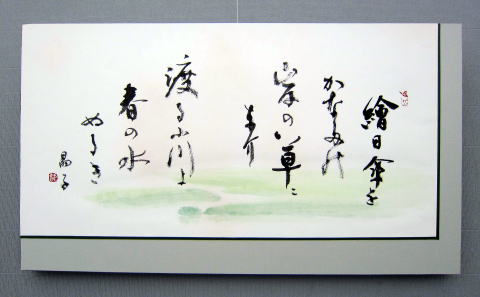 繪日傘を
かなたの
岸の草に
なげ
渡る小川よ
春の水
ぬるき
晶子